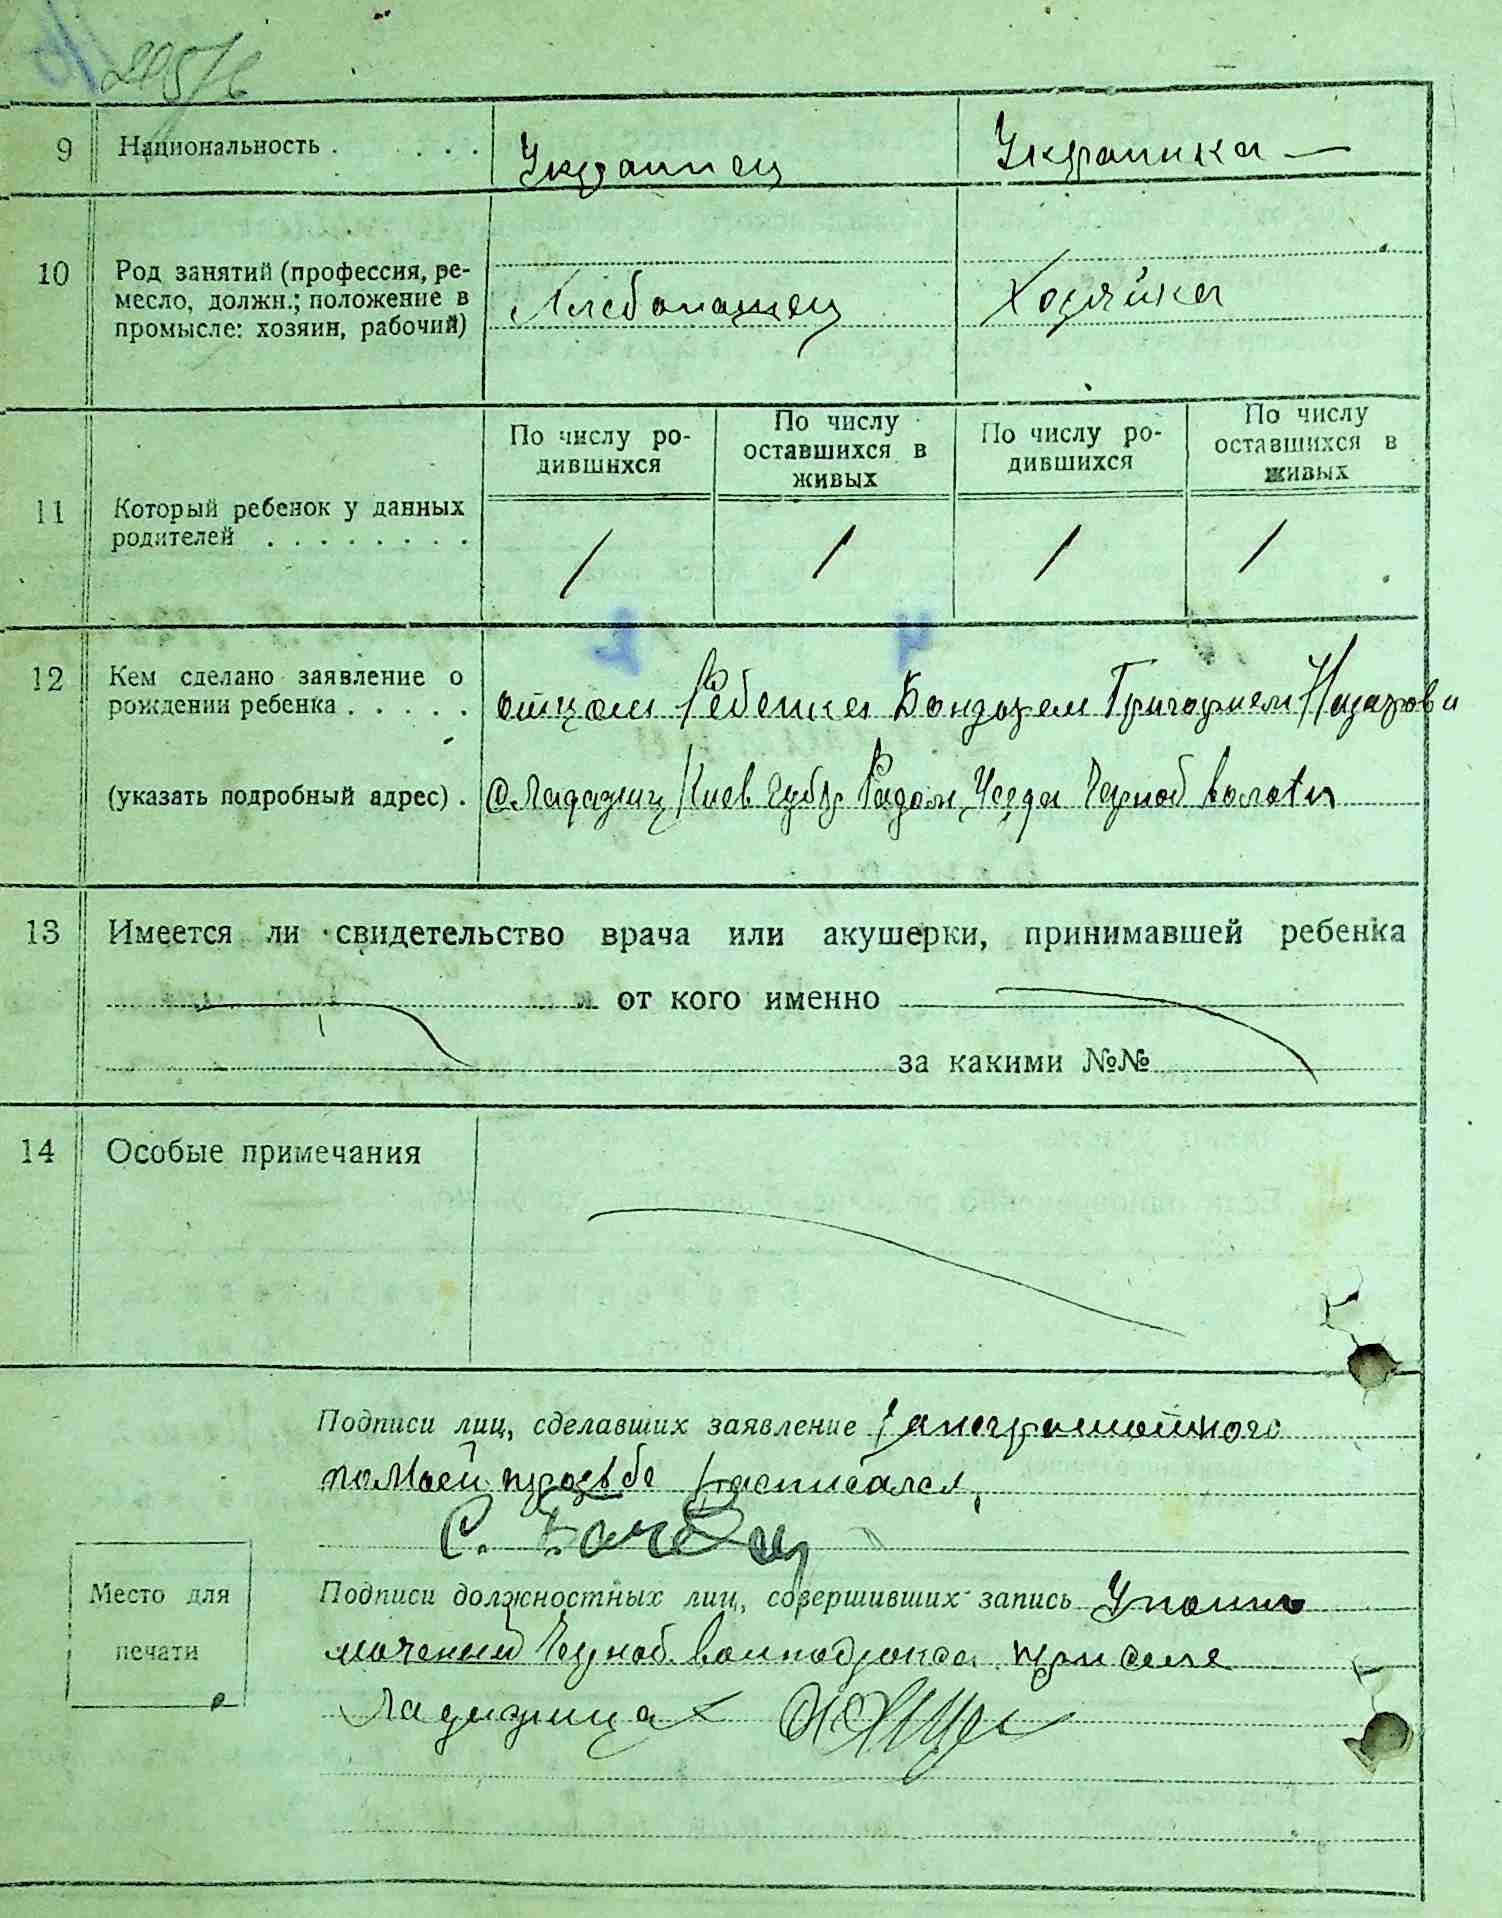 9 Национальность . . . . Украинец Украинка —
10 Род занятий (профессия, ре-
месло, должн.; положение в
промысле: хозяин, рабочий) Хлебопашец Хозяйка
По числу ро-
дившихся
По числу
оставшихся в
живых
По числу ро-
дившихся
По числу
оставшихся в
живых
11 Который ребенок у данных
родителей . . . . . . . . 1 1 1 1
12 Кем сделано заявление о
рождении ребенка . . . . . отцом Ребенка Бондарем Григорием Назарови
(указать подробный адрес) . Киев губ Радом, Уезда Черноб волости
13 Имеется ли свидетельство врача или акушерки, принимавшей ребенка
от кого именно
за какими №№
14 Особые примечания
Подписи лиц, сделавших заявление неграмотного
по моей прозьбе расписался,
С.
Место для
печати
Подписи должностных лиц, совершивших запись Уполно
моченый Черноб. при селе